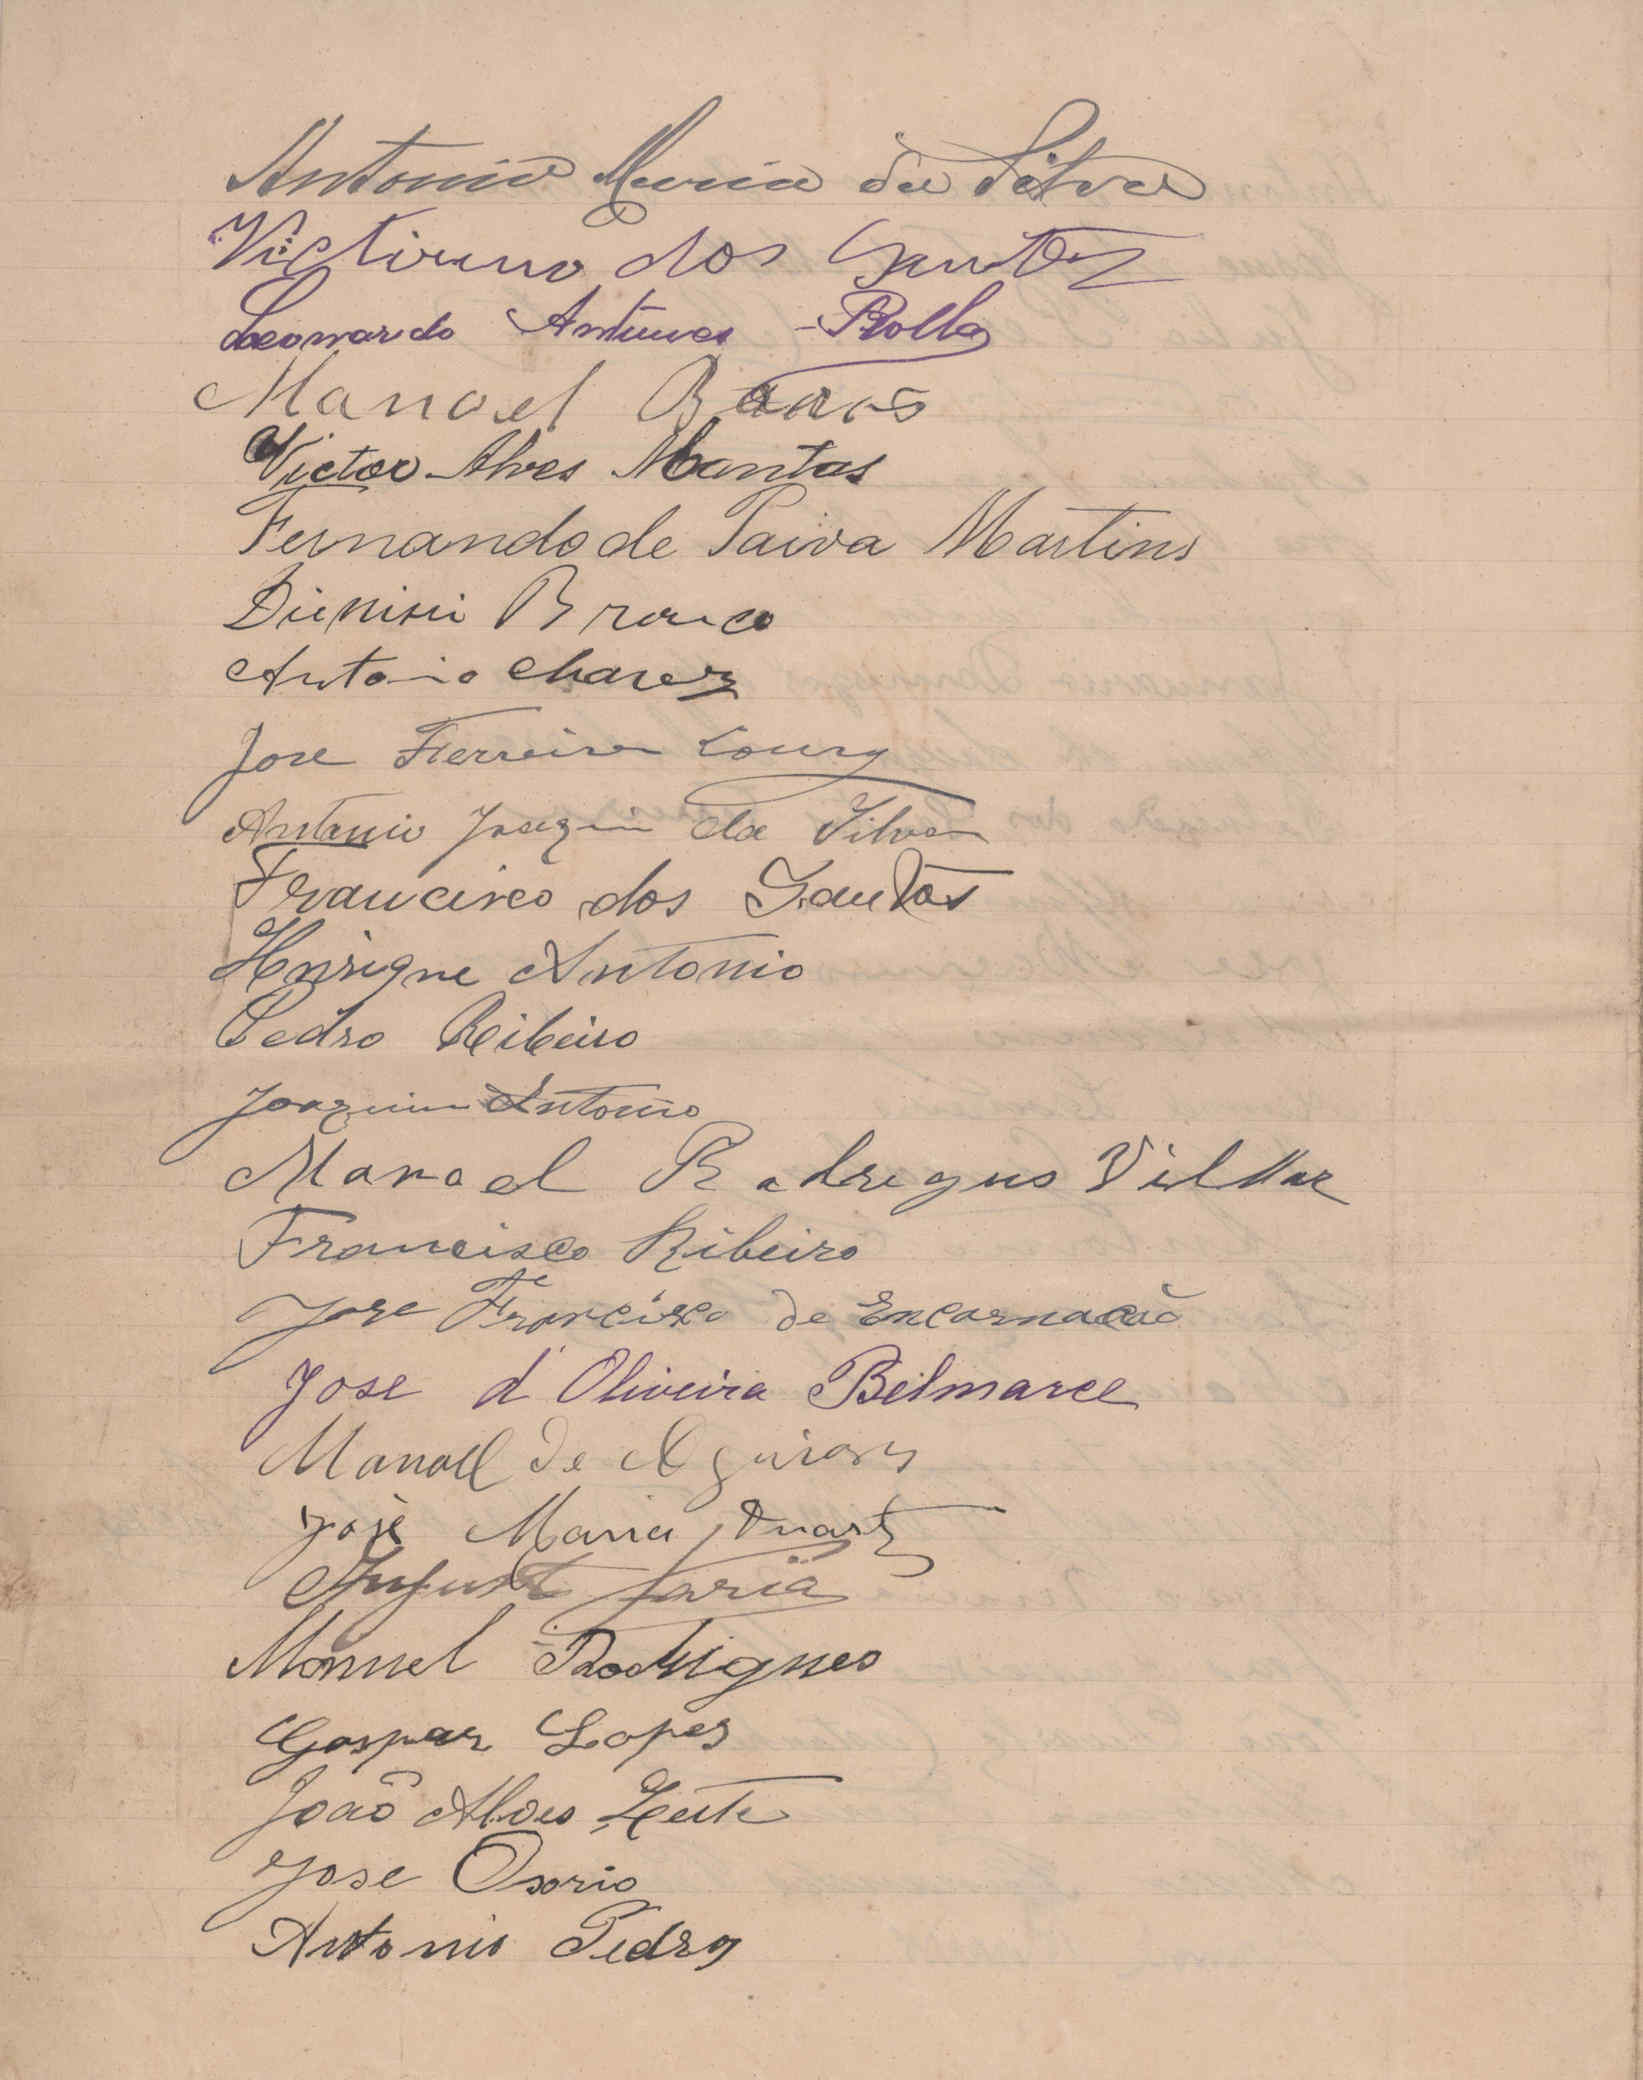 Antonio Maria da Silva
Victirino dos Santos
Leonardo Antunes Rolla
Manoel
Victor Alves Mantas
Fernando de Paiva Martins
Dionisi Branco
Antonio Chavez
Jose Ferreira
Antonio Joaqim da Silva
Francisco dos Santos
Henrique Antonio
Pedro Ribeiro
Joaquim Antonio
Manoel Rodregus Villar
Francisco Ribeiro
Jose Francisco de Encarnacão
Jose d'Oliveira Belmarce
Manoel de
José Maria Duarte
Faria
Manuel Rodrigues
Gaspar Lopes
João Alves Leite
Jose Osorio
Antonio Pedro